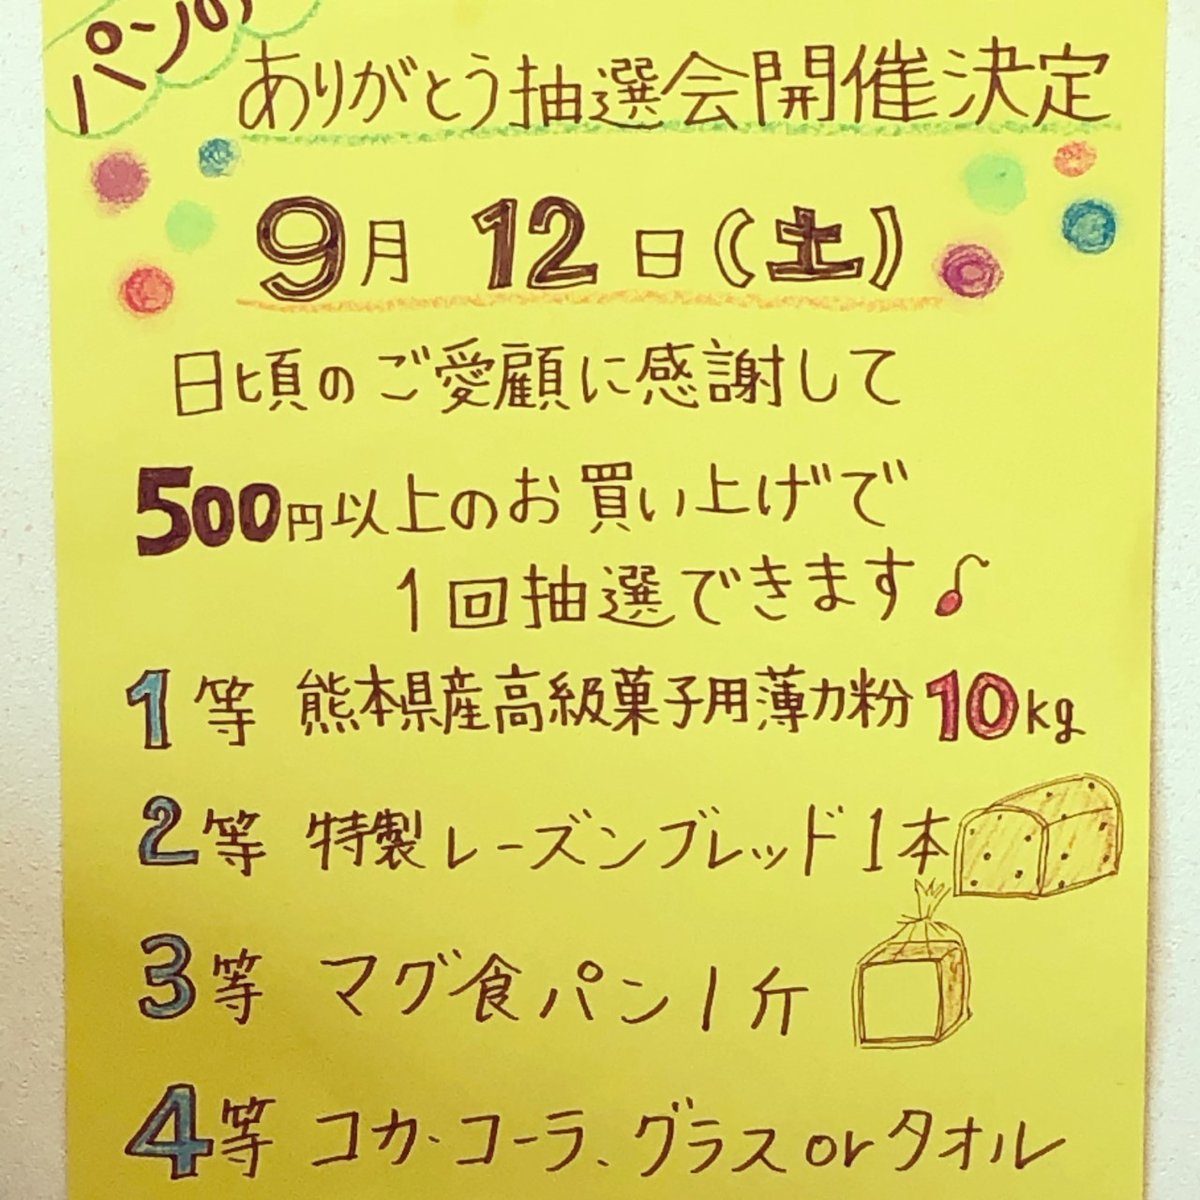 パンの
ありがとう抽選会開催決定
9月 12日(土)
日頃のご愛顧に感謝して
500円以上のお買い上げで
1回抽選できます♪
1等 熊本県産高級菓子用薄力粉10kg
2等 特製レーズンブレッド1本
3等 マグ食パン1斤
4等 コカ・コーラ、グラスorタオル